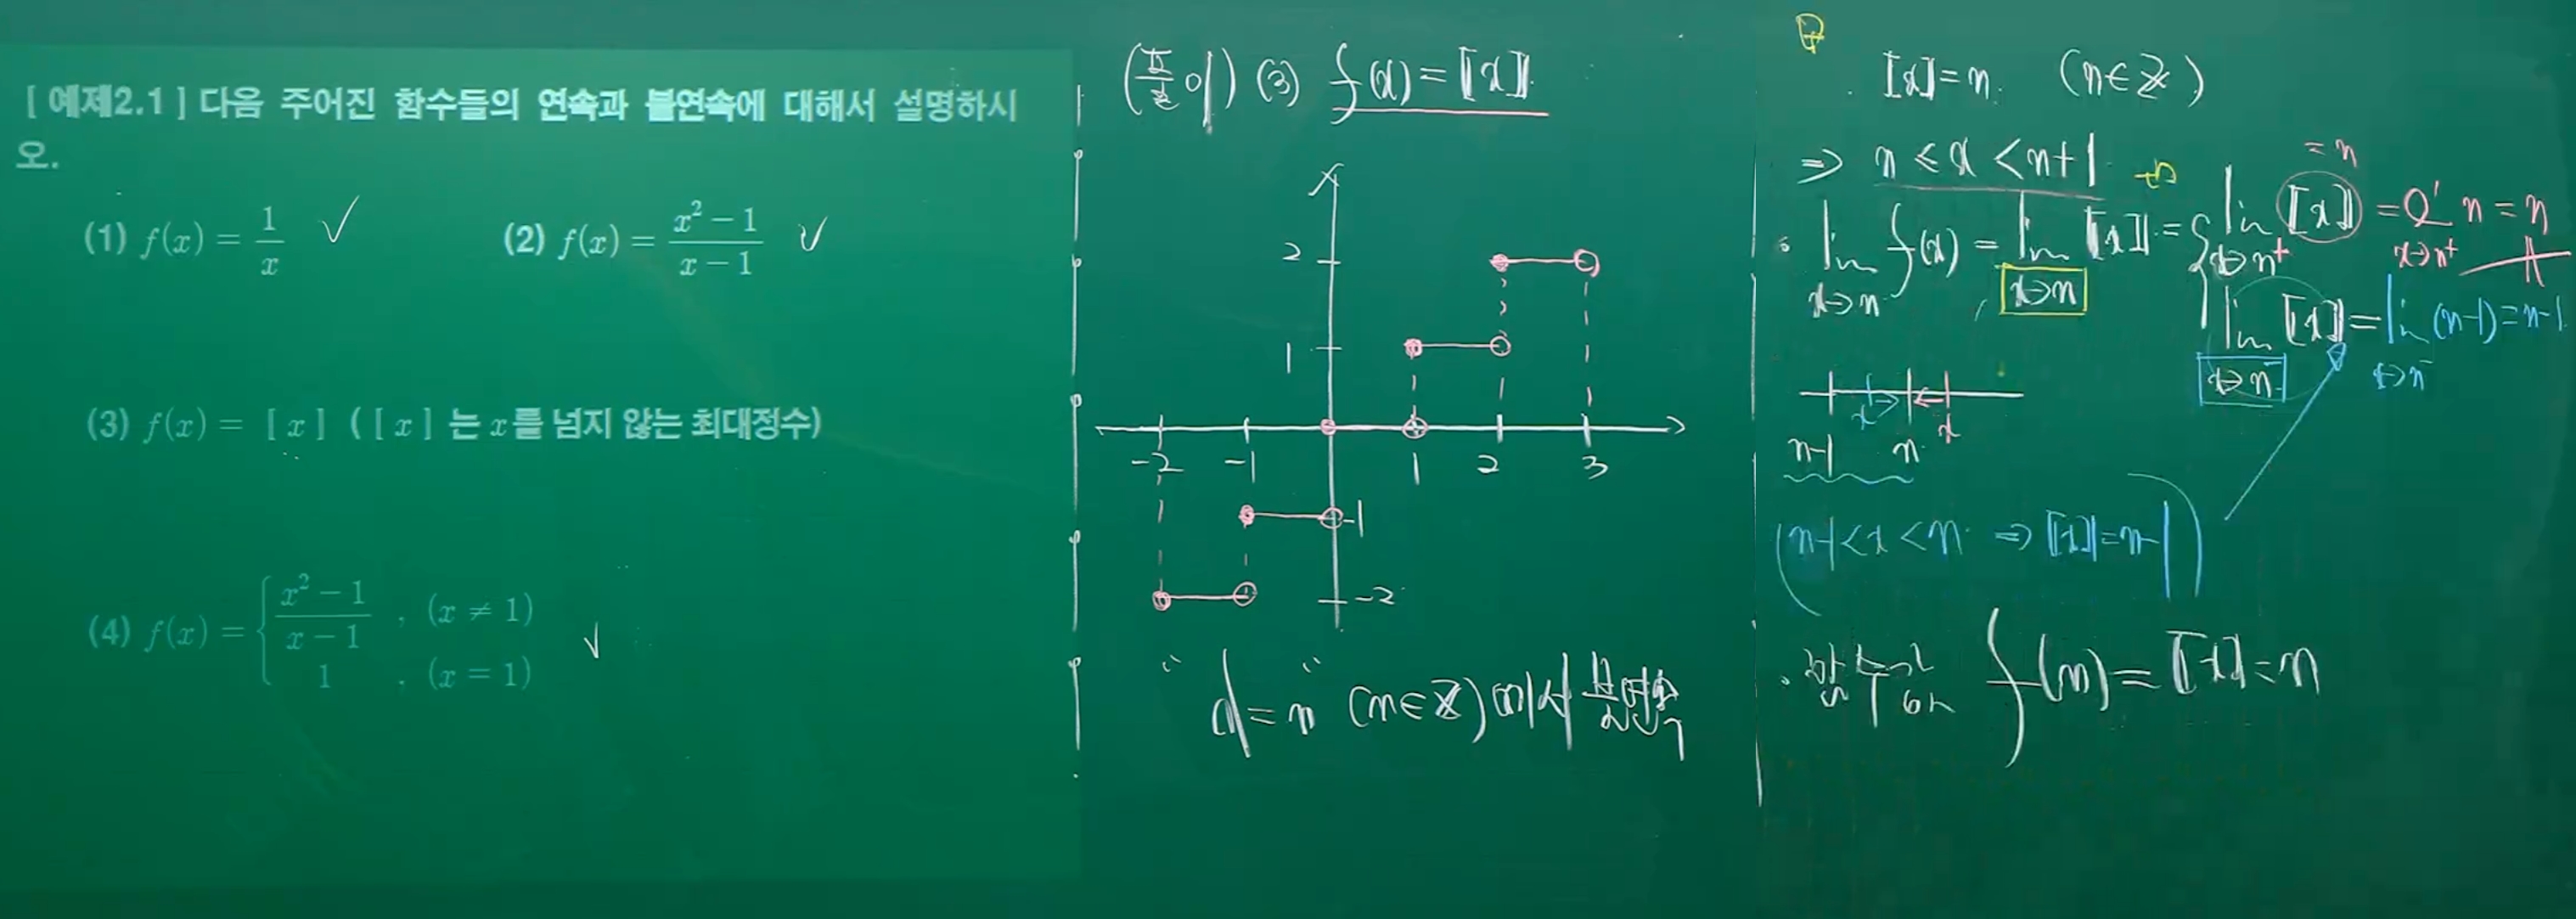 [ 예제2.1 ] 다음 주어진 함수들의 연속과 불연속에 대해서 설명하시
오.
(1) f(x) = 1/x ✓
(2) f(x) = (x² − 1)/(x − 1) ✓
(3) f(x) = [ x ] ( [ x ] 는 x를 넘지 않는 최대정수)
(4) f(x) = { (x² − 1)/(x − 1) , (x ≠ 1)
1 , (x = 1) ✓
(풀이) (3) f(x) = [[x]]
2
1
-2 -1 1 2 3
-1
-2
"x = n" (n∈Z)에서 불연속
[[x]] = n (n∈Z)
⇒ n ≤ x < n+1
= n
lim x→n f(x) = lim x→n [[x]] = { lim x→n⁺ [[x]] = lim x→n⁺ n = n
lim x→n⁻ [[x]] = lim x→n⁻ (n-1) = n-1
x x
n-1 n
(n-1 < x < n ⇒ [[x]] = n-1)
· 함숫값 f(n) = [[x]] = n